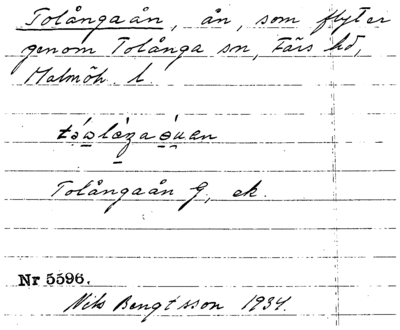 Tolångaån, ån, som flyter
genom Tolånga sn, Färs hd,
Malmöh. l.
Tolångaån G, ek.
Nr 5596.
Nils Bengtsson 1934.